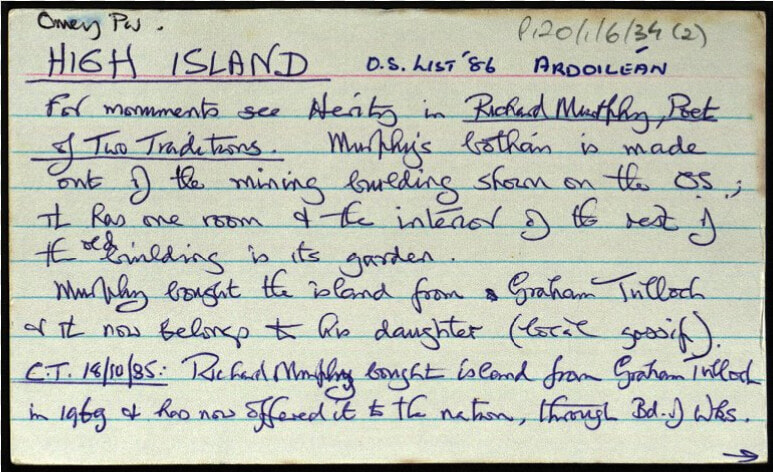 Omey Ph.
P120/1/6/34 (2)
HIGH ISLAND O.S. LIST '86 ARDOILEÁN
For monuments see Herity in Richard Murphy, Poet
of Two Traditions. Murphy's bothán is made
out of the mining building shown on the OS;
it has one room & the interior of the rest of
the old building is its garden.
Murphy bought the island from Graham Tulloch
& it now belongs to his daughter (local gossip).
C.T. 18/10/85: Richard Murphy bought island from Graham Tulloch
in 1969 & has now offered it to the nation, through Bd. of Wks.
→